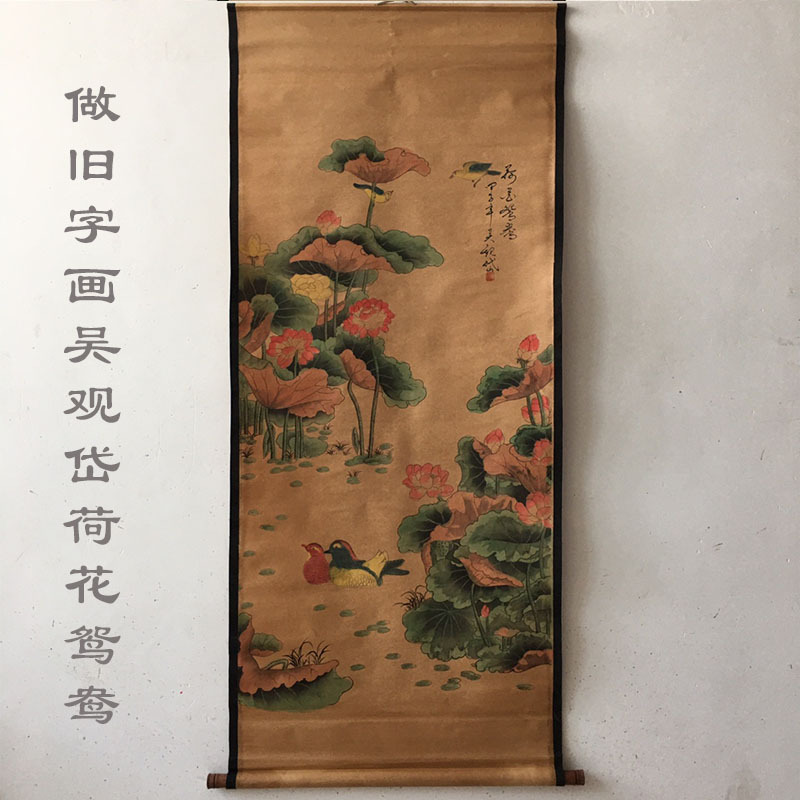 做旧字画吴观岱荷花鸳鸯
荷色鸳鸯
甲子年吴观岱